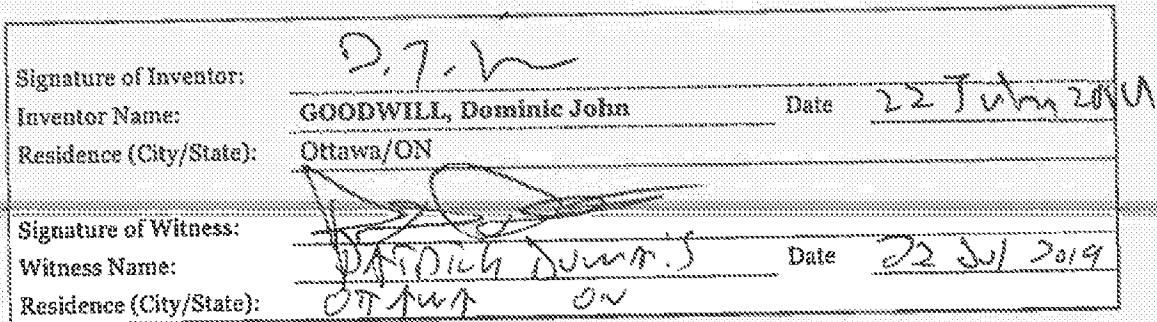 Signature of Inventor: D. J.
Inventor Name: GOODWILL, Dominic John Date 22 July
Residence (City/State): Ottawa/ON
Signature of Witness:
Witness Name: PATRICK Date 22 Jul 2019
Residence (City/State): OTTAWA ON